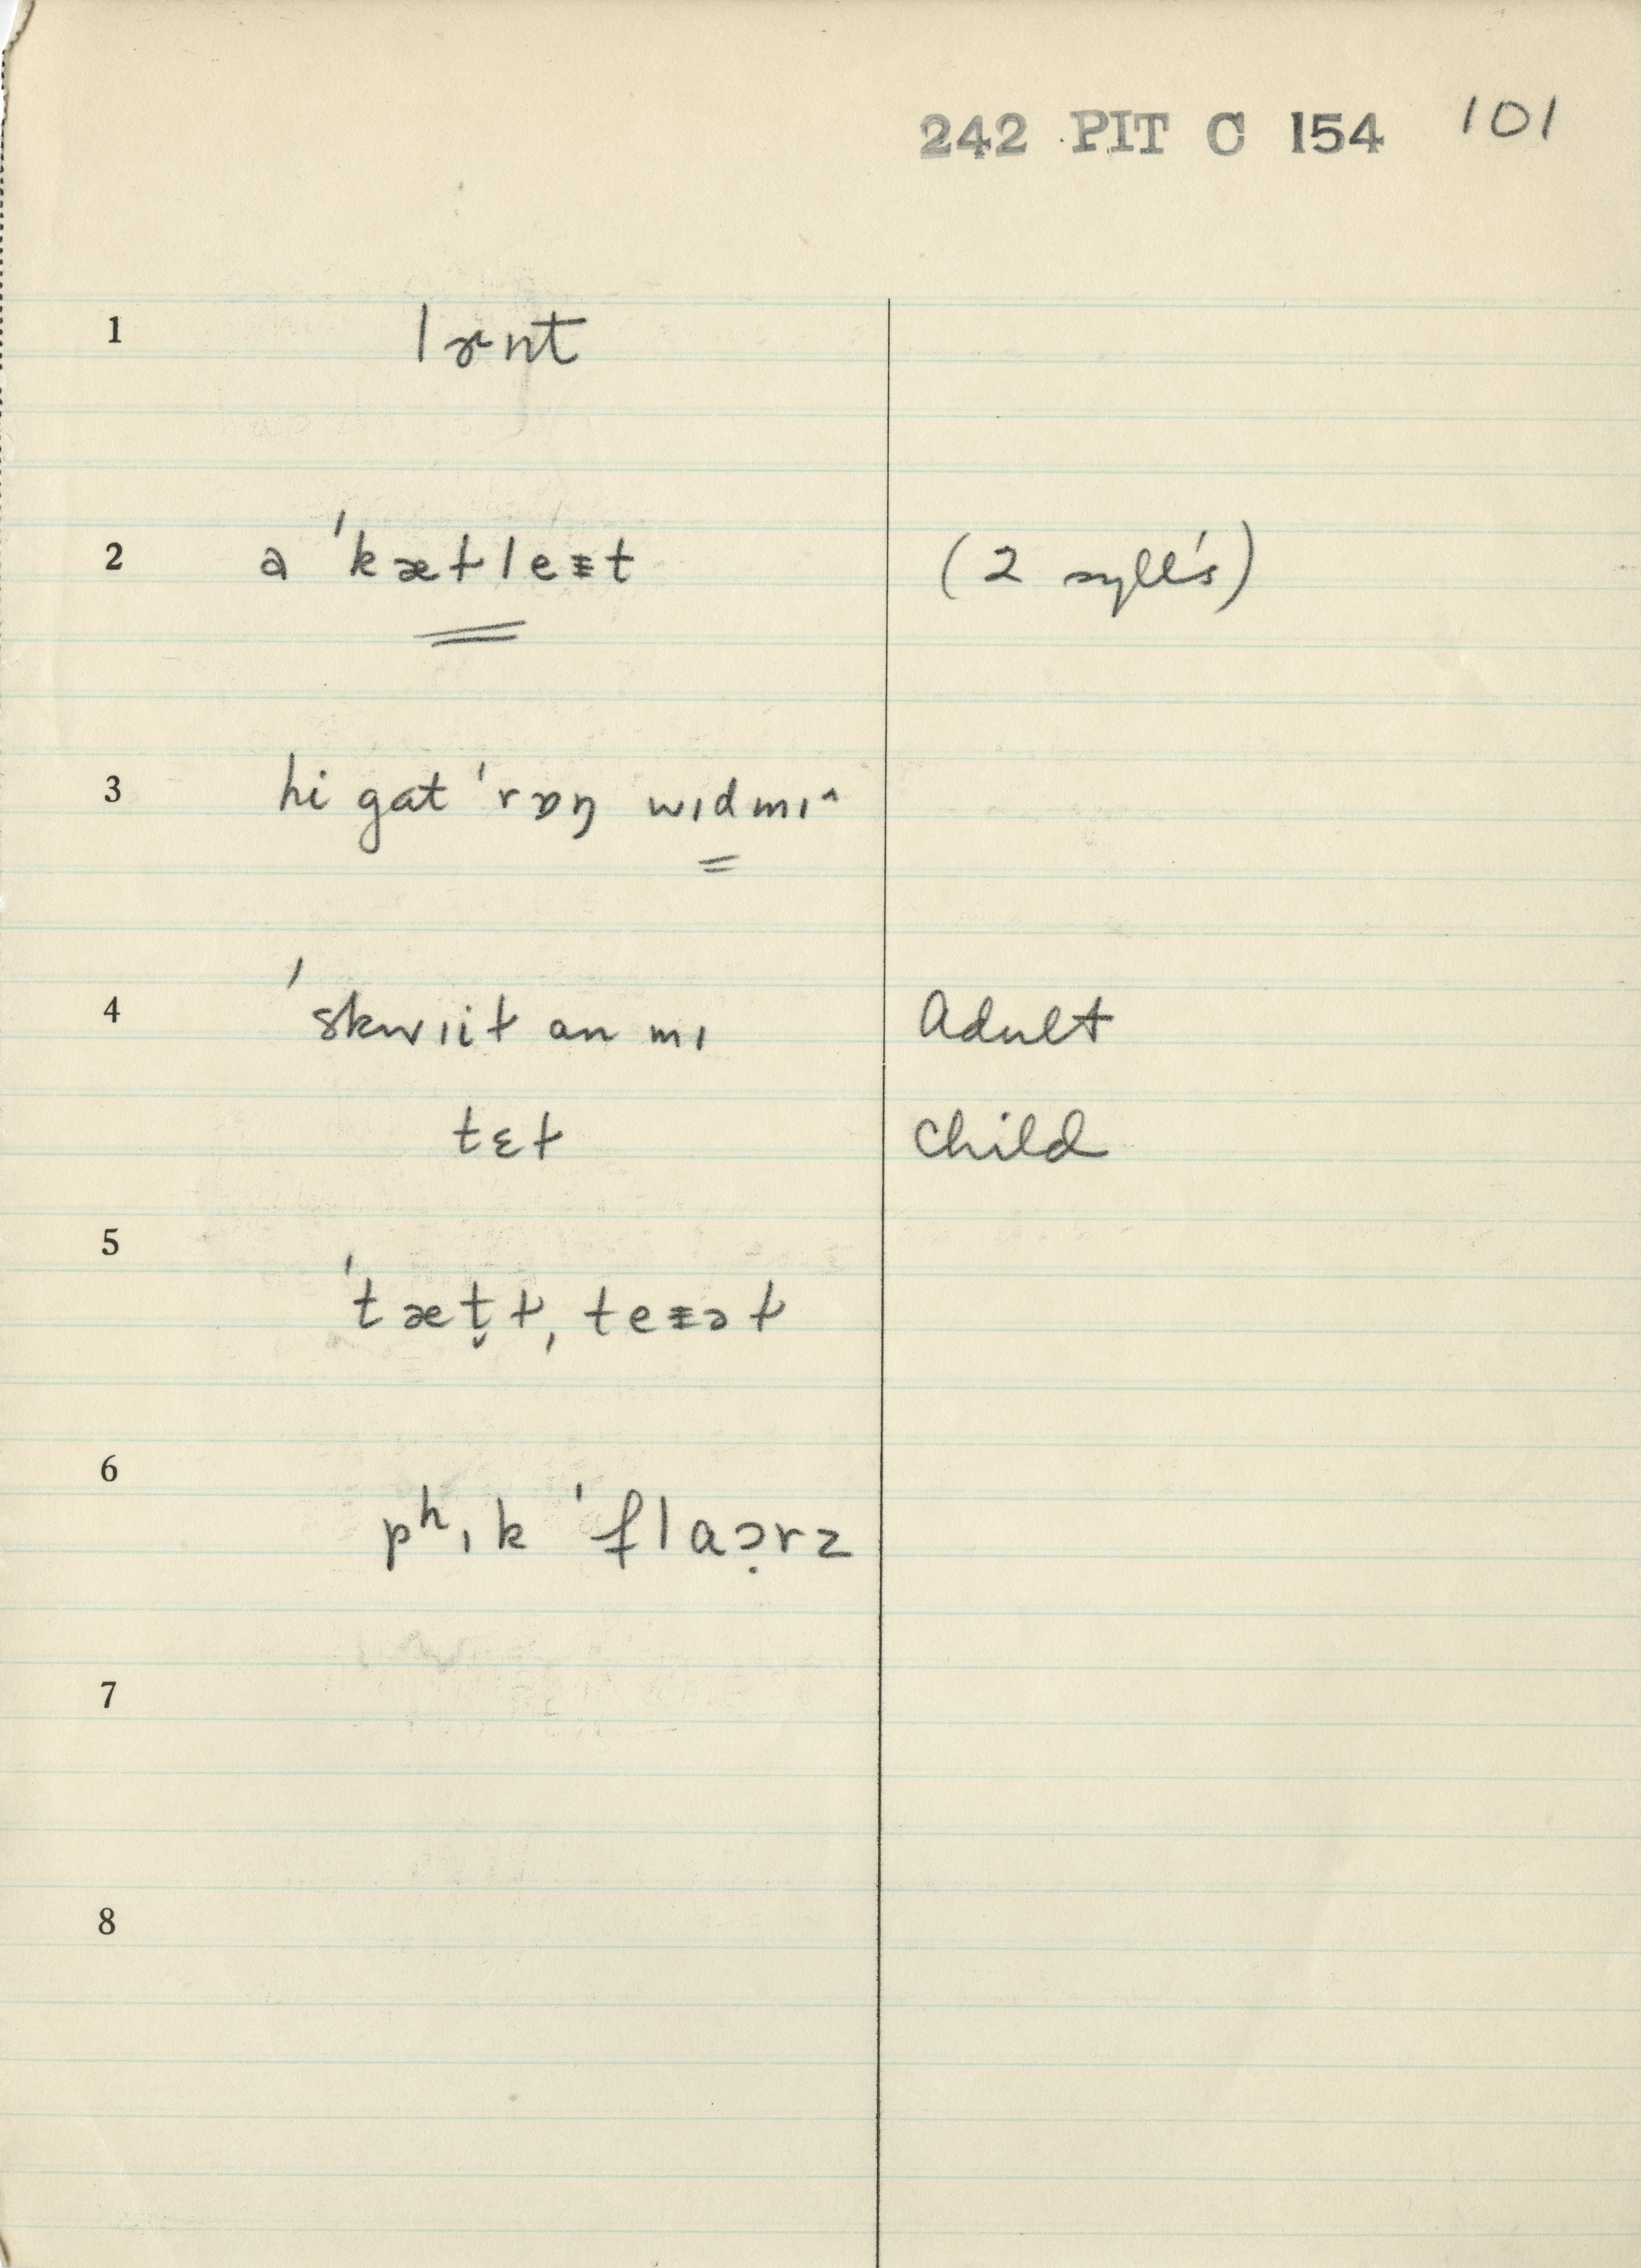 242 PIT C 154 101
1 lɚnt
2 a ˈkæɫleᵻt (2 syll's)
3 hi gat ˈrɒŋ wɪdmɪ^
4 ˈskwɪiɫ an mɪ Adult
tɛɫ child
5 ˈtæt̬ɫ, teᵻəɫ
6 pʰɪk ˈflaɔ̣rz
7
8